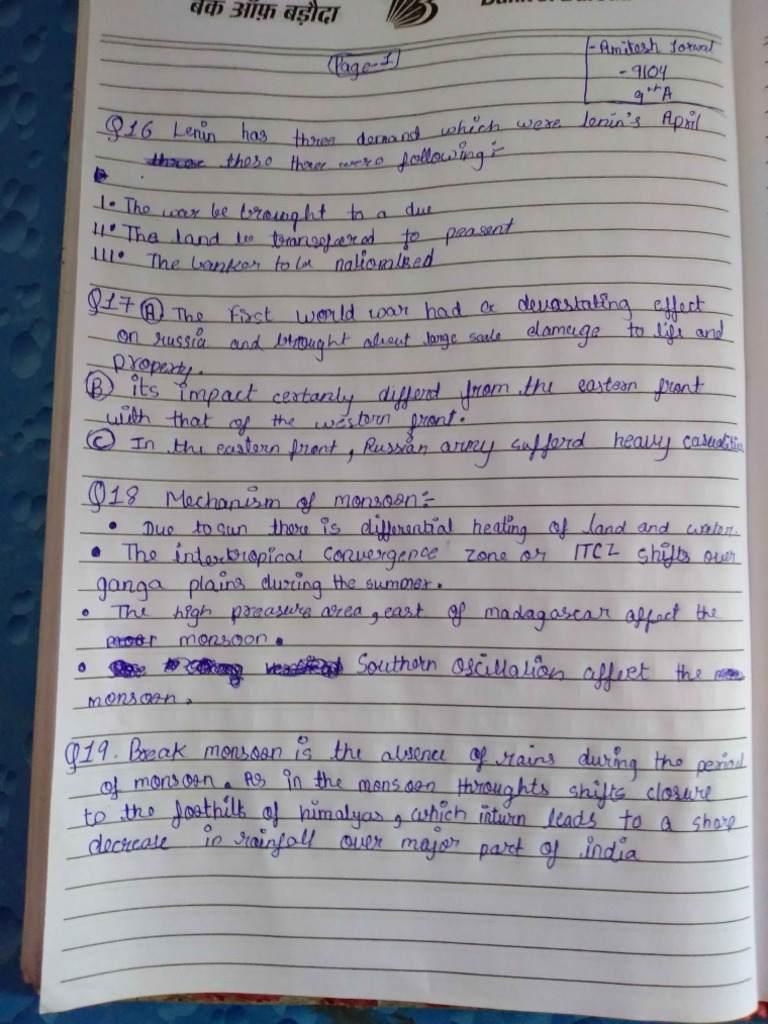 बैंक ऑफ़ बड़ौदा
Page-1
- Amitesh
- 9104
9th A
Q16 Lenin has three demand which were lenin's April
these three were following:-
I. The war be brought to a due
II. The land be transfered to peasent
III. The banker to be nationlised
Q17 (A) The first world war had a devastating effect
on russia and brought about large scale damage to life and
property.
(B) its impact certanly differd from the eastern front
with that of the western front.
(C) In the eastern front, Russian army sufferd heavy
Q18 Mechanism of monsoon:-
• Due to sun there is differential heating of land and water.
• The intertropical convergence zone or ITCZ shifts over
ganga plains during the summer.
• The high preasure area, east of madagascar affect the
monsoon.
• Southern oscillation affect the
monsoon.
Q19. Break monsoon is the absence of rains during the period
of monsoon. As in the monsoon throughts shifts closure
to the foothills of himalyas, which inturn leads to a sharp
decrease in rainfall over major part of india